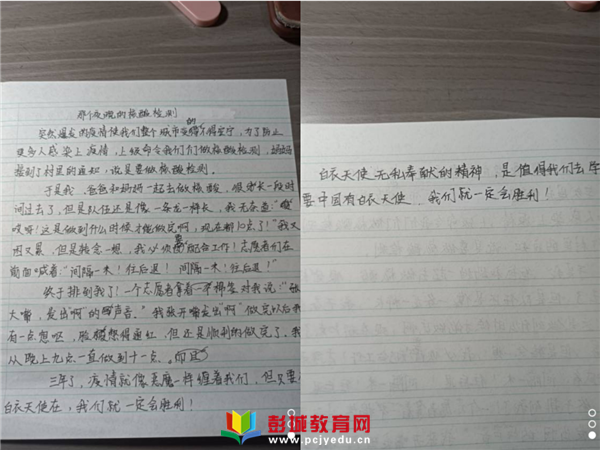 那个夜晚的核酸检测
突然爆发的疫情使我们整个城市变得不得安宁,为了防止
更多人感染上疫情,上级命令我们做核酸检测,妈妈
接到了村里的通知,说是要做核酸检测。
于是我,爸爸和妈妈一起去做核酸,很长一段时
间过去了,但是队伍还是像一条龙一样长,我无奈道:"
哎呀!这是做到什么时候才能做完啊,现在都10点了!"我又
困又累,但是转念一想,我必须要配合工作!志愿者们在
前面喊着:"间隔一米!往后退!间隔一米!往后退!"
终于排到我了!一个志愿者拿着一根棉签对我说:"张
大嘴,发出啊的声音。"我张开嘴发出"啊"做完以后我
有一点想呕,脸憋得通红,但还是顺利的做完了。我
从晚上九点一直做到十一点。
三年了,疫情就像恶魔一样缠着我们,但只要
白衣天使在,我们就一定会胜利!
白衣天使无私奉献的精神,是值得我们去学
要中国有白衣天使,我们就一定会胜利!
彭城教育网
www.pcjyedu.cn